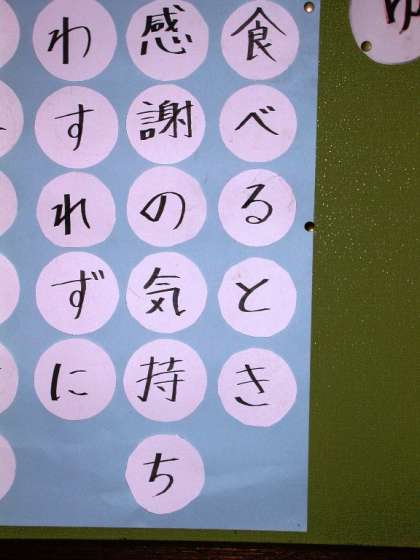 食べるとき
感謝の気持ち
わすれずに
ゆ